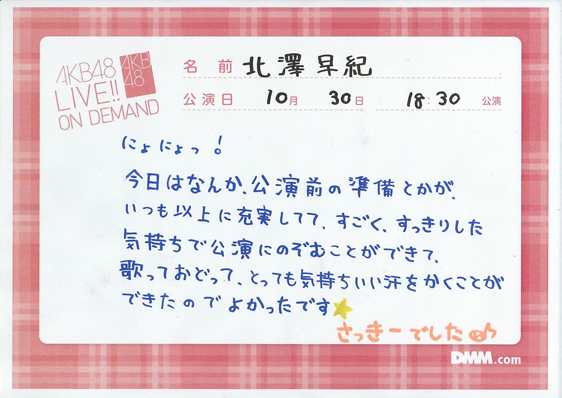 AKB48
LIVE!!
ON DEMAND
AKB
48
名前 北澤早紀
公演日 10月 30日 18:30 公演
にょにょっ!
今日はなんか、公演前の準備とかが、
いつも以上に充実してて、すごく、すっきりした
気持ちで公演にのぞむことができて、
歌っておどって、とっても気持ちいい汗をかくことが
できたのでよかったです
さっきーでした
DMM.com